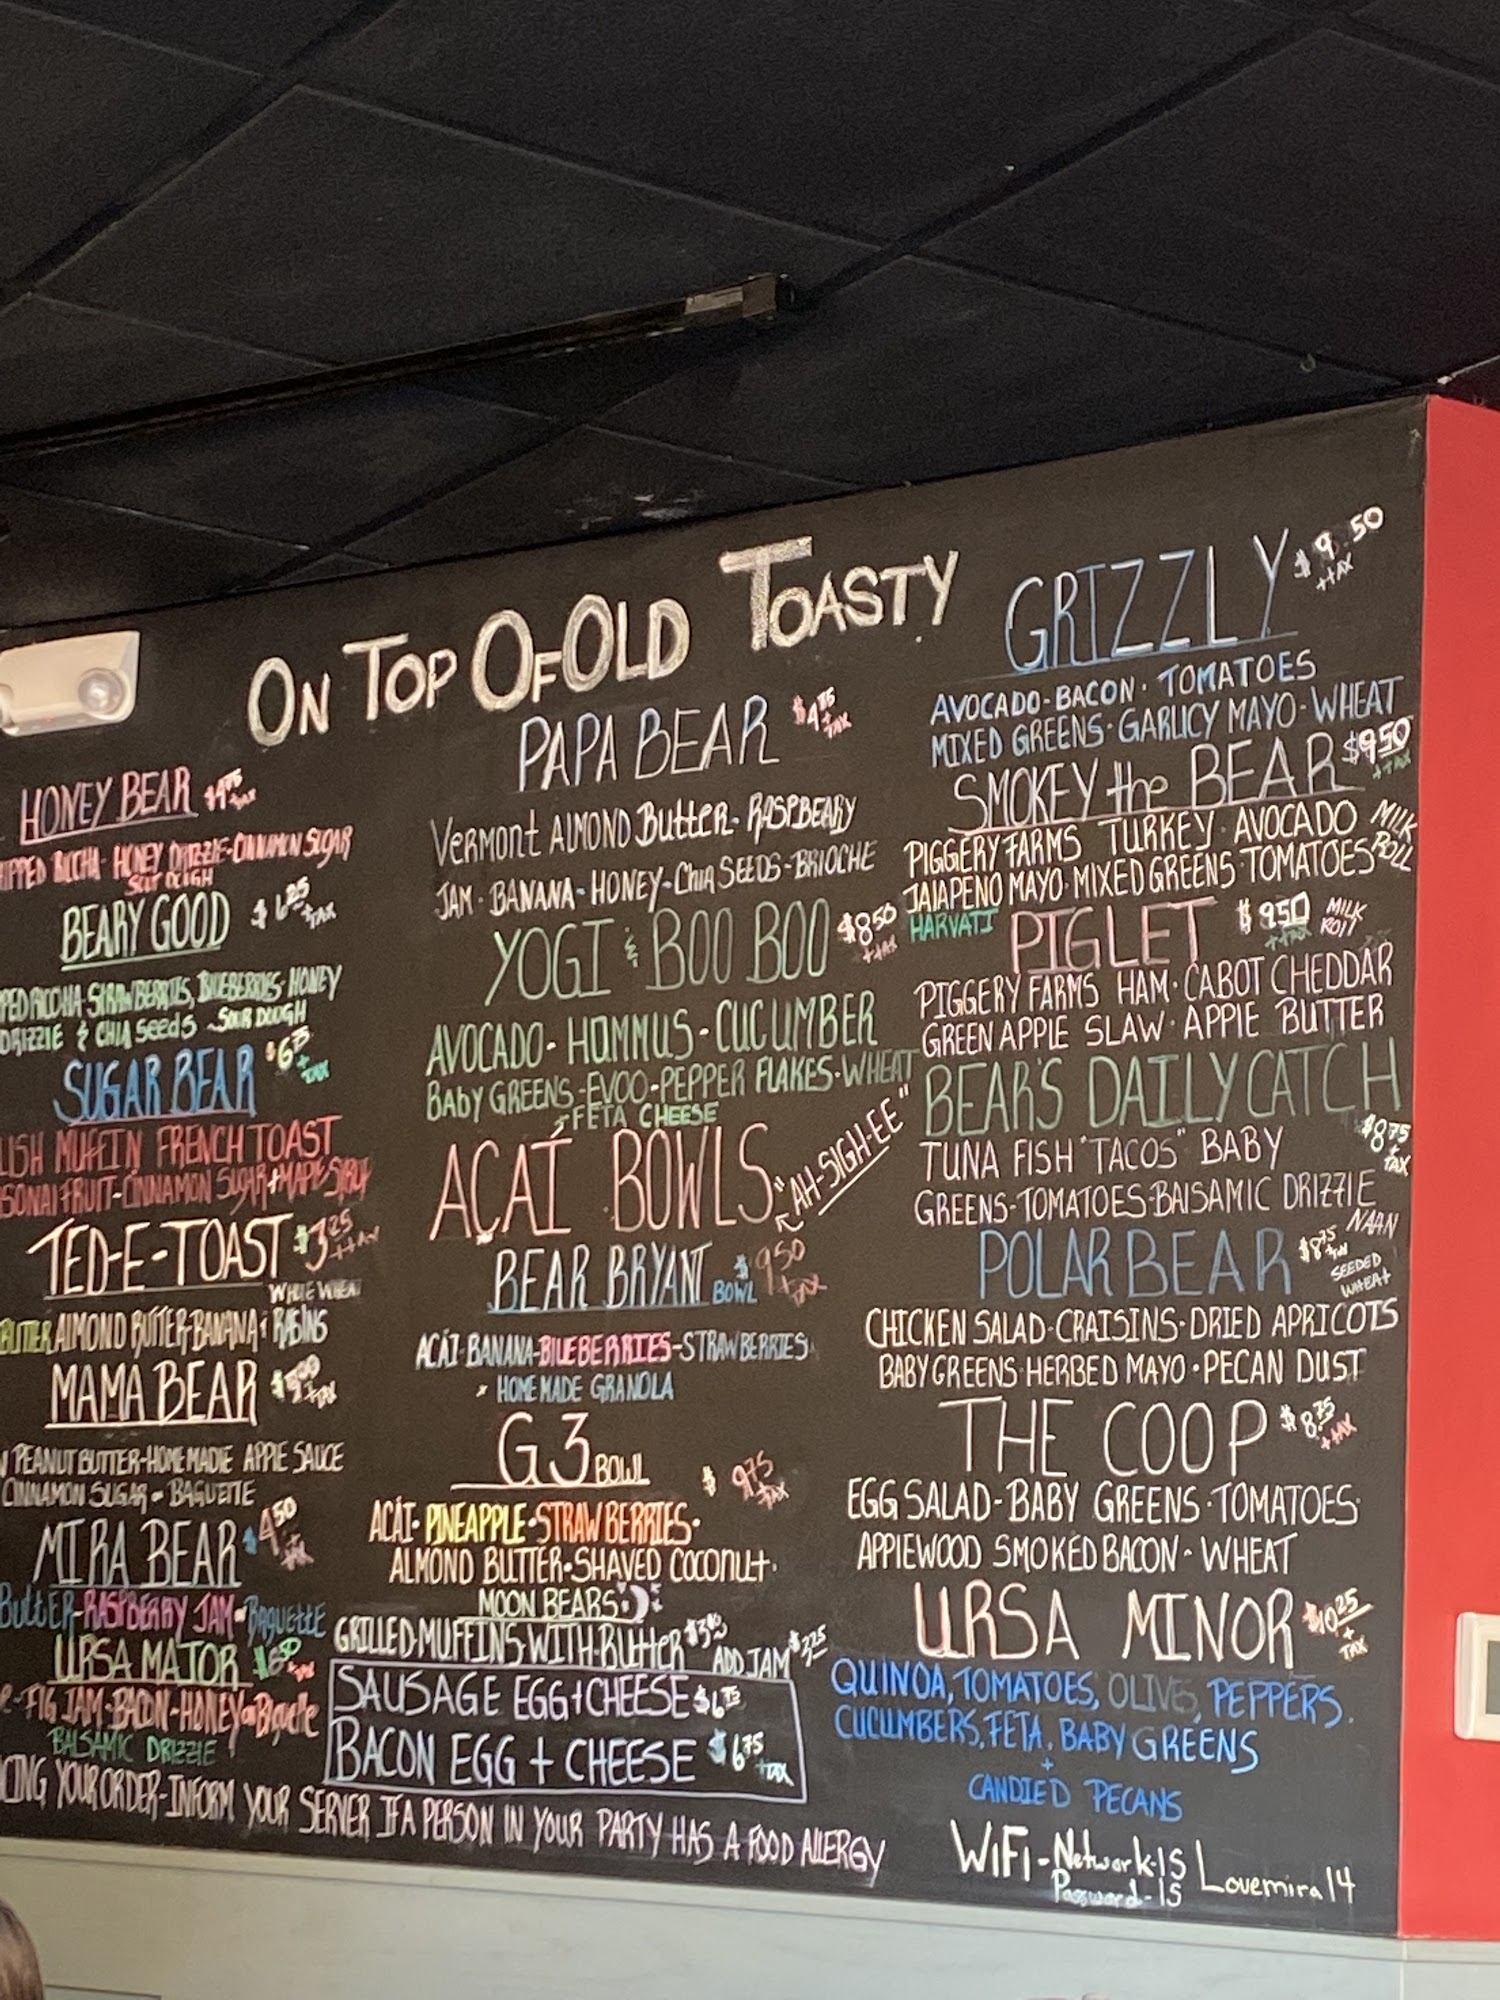 ON TOP OF OLD TOASTY
HONEY BEAR
RICCHA - HONEY DRIZZLE - CINNAMON SUGAR
SOUR DOUGH
BEARY GOOD $6.25 +TAX
RICCHIA - STRAWBERRIES, BLUEBERRIES - HONEY
DRIZZLE & CHIA SEEDS - SOUR DOUGH
SUGAR BEAR $6.75 +TAX
MUFFIN FRENCH TOAST
FRUIT - CINNAMON SUGAR + MAPLE SYRUP
TED-E-TOAST $3.25 +TAX
WHOLE WHEAT
BUTTER ALMOND BUTTER - BANANA & RAISINS
MAMA BEAR +TAX
PEANUT BUTTER - HOMEMADE APPLE SAUCE
CINNAMON SUGAR - BAGUETTE
MIRA BEAR $4.50 +TAX
BUTTER - RASPBERRY JAM - BAGUETTE
URSA MAJOR
FIG JAM - BACON - HONEY - BAGUETTE
BALSAMIC DRIZZIE
YOUR ORDER - INFORM YOUR SERVER IF A PERSON IN YOUR PARTY HAS A FOOD ALLERGY
PAPA BEAR $4.75 +TAX
VERMONT ALMOND BUTTER - RASPBEARY
JAM - BANANA - HONEY - CHIA SEEDS - BRIOCHE
YOGI & BOO BOO $8.50 +TAX
AVOCADO - HUMMUS - CUCUMBER
BABY GREENS - EVOO - PEPPER FLAKES - WHEAT
- FETA CHEESE
AÇAÍ BOWLS "AH-SIGH-EE"
BEAR BRYANT BOWL $9.50 +TAX
AÇÁI - BANANA - BLUEBERRIES - STRAWBERRIES
HOMEMADE GRANOLA
G3 BOWL $9.75 +TAX
AÇÁI - PINEAPPLE - STRAWBERRIES -
ALMOND BUTTER - SHAVED COCONUT
MOON BEARS
GRILLED MUFFINS WITH BUTTER ADD JAM $3.25
SAUSAGE EGG + CHEESE $6.75
BACON EGG + CHEESE $6.75 +TAX
GRIZZLY $9.50 +TAX
AVOCADO - BACON - TOMATOES
MIXED GREENS - GARLICY MAYO - WHEAT
SMOKEY the BEAR $9.50 +TAX
PIGGERY FARMS TURKEY - AVOCADO MILK ROLL
JALAPENO MAYO - MIXED GREENS - TOMATOES
HARVATI
PIGLET $9.50 +TAX MILK ROLL
PIGGERY FARMS HAM - CABOT CHEDDAR
GREEN APPLE SLAW - APPLE BUTTER
BEAR'S DAILY CATCH $8.75 + TAX
TUNA FISH "TACOS" BABY
GREENS - TOMATOES - BALSAMIC DRIZZIE
NAAN
POLAR BEAR $8.75 +TAX SEEDED WHEAT
CHICKEN SALAD - CRAISINS - DRIED APRICOTS
BABY GREENS - HERBED MAYO - PECAN DUST
THE COOP $8.75 +TAX
EGG SALAD - BABY GREENS - TOMATOES -
APPLEWOOD SMOKED BACON - WHEAT
URSA MINOR $10.25 + TAX
QUINOA, TOMATOES, OLIVES, PEPPERS,
CUCUMBERS, FETA, BABY GREENS
+
CANDIED PECANS
WiFi - Network - IS Lovemira14
Password - IS